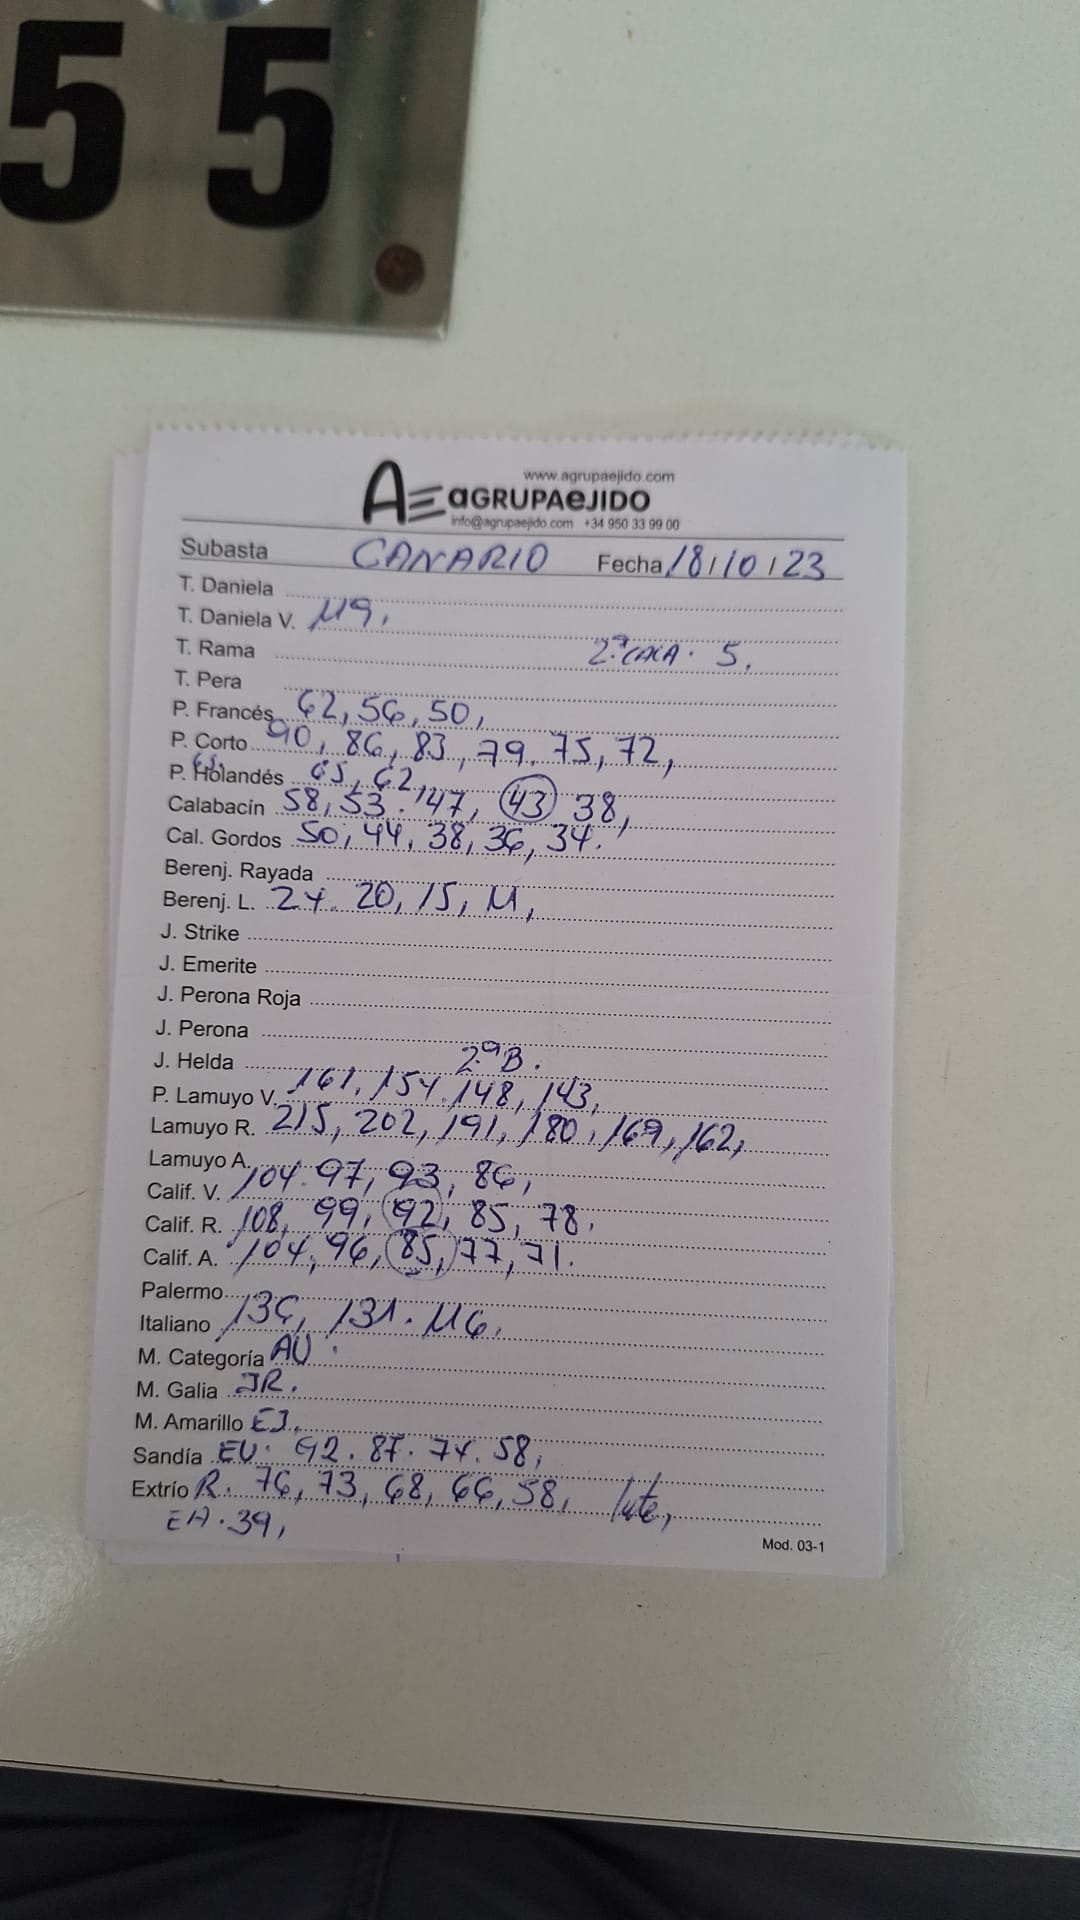 55
www.agrupaejido.com
AE aGRUPAeJIDO
info@agrupaejido.com +34 950 33 99 00
Subasta CANARIO Fecha 18/10/23
T. Daniela
T. Daniela V. 119,
T. Rama 2ª CAIA. 5,
T. Pera
P. Francés 62, 56, 50,
P. Corto 90, 86, 83, 79. 75, 72,
P. Holandés 65, 62,
Calabacín 58, 53. 47, 43 38,
Cal. Gordos 50, 44, 38, 36, 34.
Berenj. Rayada
Berenj. L. 24. 20, 15, 11,
J. Strike
J. Emerite
J. Perona Roja
J. Perona
J. Helda 2ªB.
P. Lamuyo V. 161, 154. 148, 143,
Lamuyo R. 215, 202, 191, 180, 169, 162,
Lamuyo A.
Calif. V. 104. 97, 93, 86,
Calif. R. 108, 99, 92, 85, 78.
Calif. A. 104, 96, 85, 77, 71.
Palermo
Italiano 136, 131. 116,
M. Categoría AU.
M. Galia JR.
M. Amarillo EJ.
Sandía EV. 92. 87. 74. 58,
Extrío R. 76, 73, 68, 66, 58,
EA. 39,
Mod. 03-1